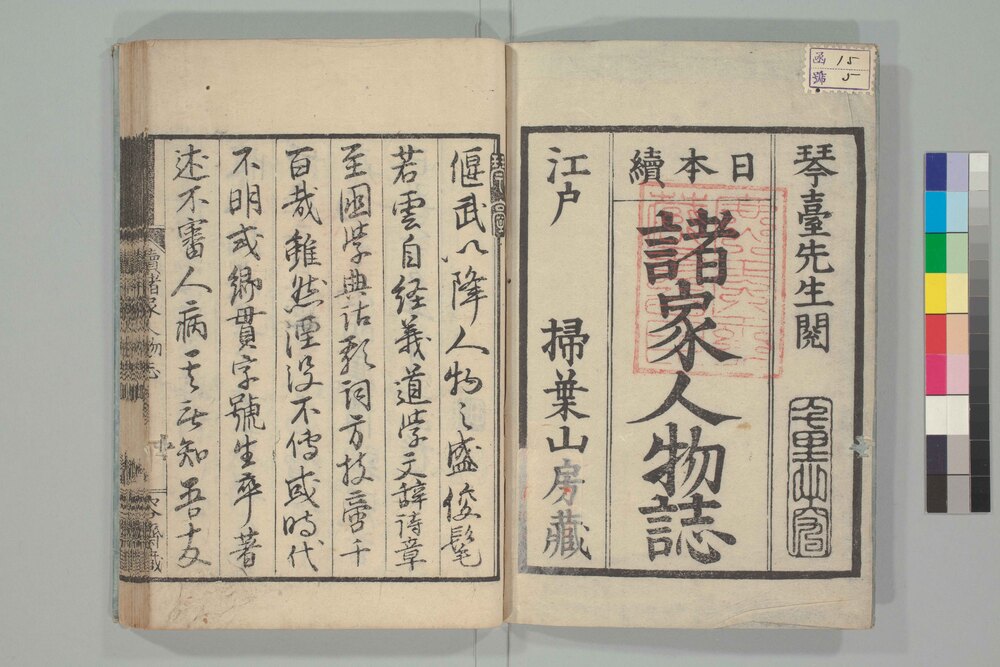 函 15
號 5
琴臺先生閱
日本續
諸家人物誌
江戸 掃葉山房藏
偃武以降人物之盛俊髦
若雲自経義道学文辞詩章
至国学典詁歌詞方技啻千
百哉雖然湮没不傳或時代
不明或鄉貫字號生卒著
述不審人病其無知吾友
續諸家人物志